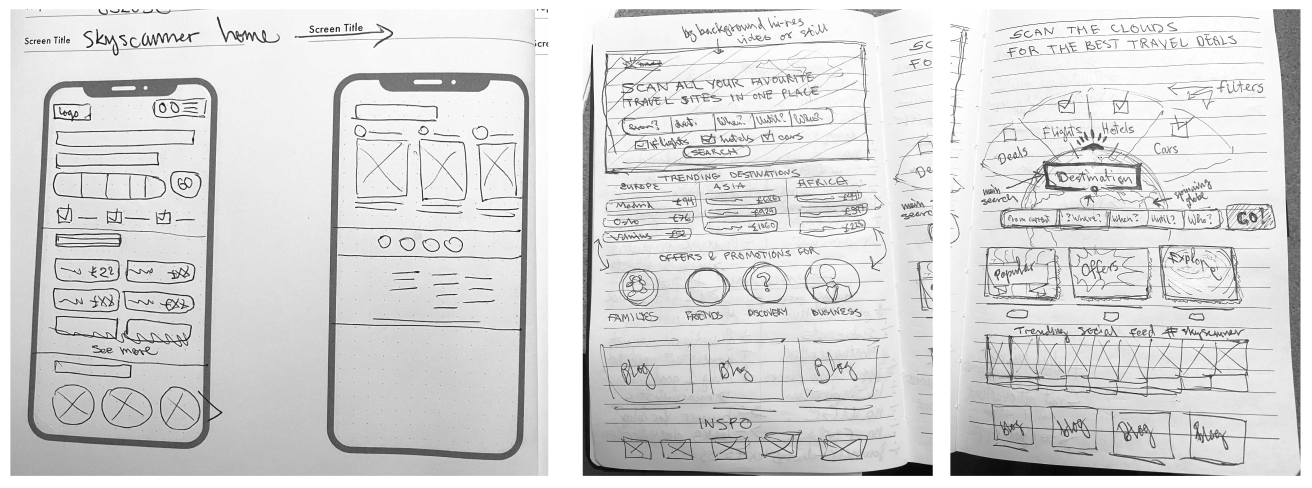 Screen Title skyscanner home
Screen Title
Logo
GO
£22 £XX
£XX £XX
See more
bg background hi-res
video or still
SCAN ALL YOUR FAVOURITE
TRAVEL SITES IN ONE PLACE
When? Until? Who?
flights hotels cars
SEARCH
TRENDING DESTINATIONS
EUROPE ASIA AFRICA
Madrid £44
Oslo £76
Vilnius £52
£1160
OFFERS & PROMOTIONS FOR
FAMILIES FRIENDS DISCOVERY BUSINESS
?
Blog Blog Blog
INSPO
SC
FO
De
main
search
SCAN THE CLOUDS
FOR THE BEST TRAVEL DEALS
filters
Flights Hotels
Deals Cars
Destination
main
search
spinning
globe
From ? Where? When? Until? Who? GO!
Popular Offers Explore
Trending social feed #skyscanner
Blog Blog Blog Blog